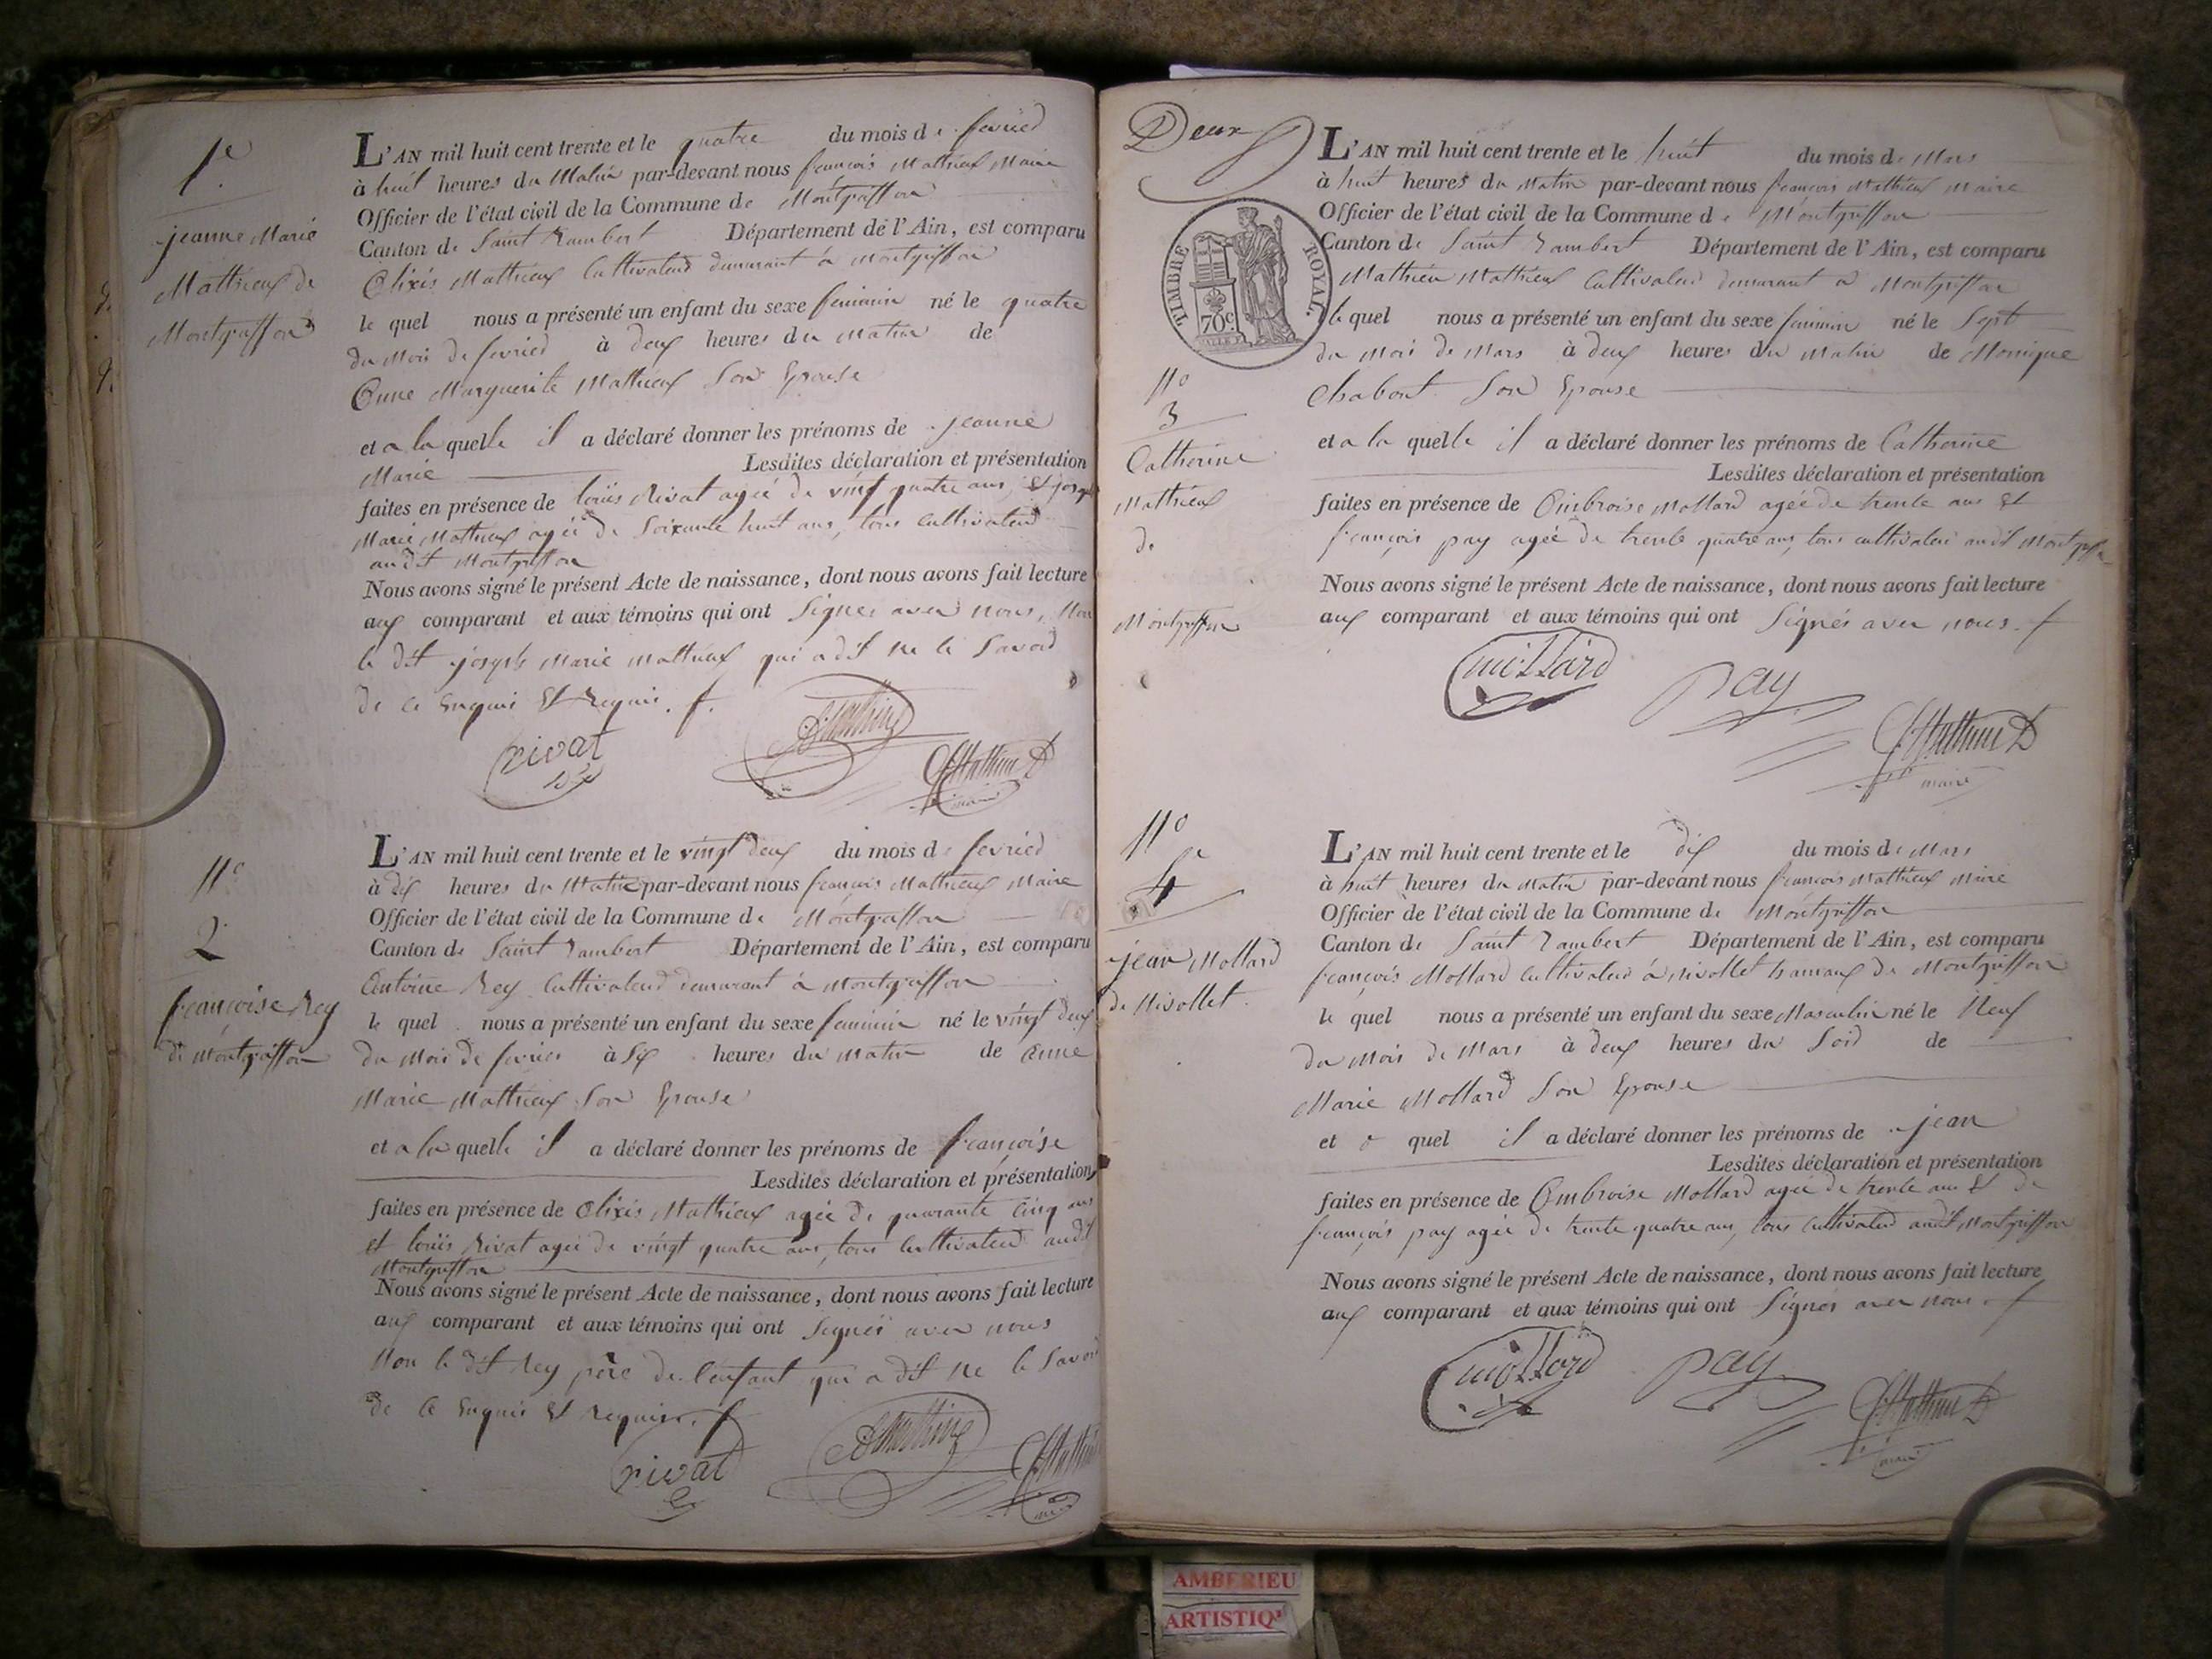 1e
jeanne Marie
Mathieux de
Montgriffon
L'AN mil huit cent trente et le quatre du mois de fevried
à huit heures du Matin par-devant nous françois Mathieux Maire
Officier de l'état civil de la Commune de Montgriffon
Canton de Saint Rambert Département de l'Ain, est comparu
Alixis Mathieux Cultivateur demurant à Montgriffon
le quel nous a présenté un enfant du sexe feminin né le quatre
du Mois de fevried à deux heures du Matin de
Anne Marguerite Mathieux Son Epouse
et a la quelle il a déclaré donner les prénoms de jeanne
Marie Lesdites déclaration et présentation
faites en présence de loüis Rivat agée de vingt quatre ans, Et joseph
Marie Mathieux agée de Soixante huit ans, tous cultivateur
audit Montgriffon
Nous avons signé le présent Acte de naissance, dont nous avons fait lecture
aux comparant et aux témoins qui ont Signés avec nous, Non
le dit joseph Marie Mathieux qui a dit ne le Savoir
de ce Enquis Et Requis.
rivat
AMathieux
FMathieux
maire
No
2
françoise Rey
de Montgriffon
L'AN mil huit cent trente et le vingt deux du mois de fevried
à dix heures du Matin par-devant nous françois Mathieux Maire
Officier de l'état civil de la Commune de Montgriffon
Canton de Saint Rambert Département de l'Ain, est comparu
Antoine Rey Cultivateur demurant à Montgriffon
le quel nous a présenté un enfant du sexe feminin né le vingt deux
du Mois de fevrier à Six heures du matin de Anne
Marie Mathieux Son Epouse
et a la quelle il a déclaré donner les prénoms de françoise
Lesdites déclaration et présentation
faites en présence de Alixis Mathieux agée de quarante Cinq ans
Et loüis Rivat agée de vingt quatre ans, tous Cultivateur audit
Montgriffon
Nous avons signé le présent Acte de naissance, dont nous avons fait lecture
aux comparant et aux témoins qui ont Signés avec nous
Non le dit Rey père de l'enfant qui a dit ne le Savoir
de ce Enquis Et requis.
rivat
AMathieux
FMathieux
Deux
TIMBRE ROYAL
70c
No
3
Catherine
Mathieux
de
Montgriffon
L'AN mil huit cent trente et le huit du mois de Mars
à huit heures du Matin par-devant nous françois Mathieux Maire
Officier de l'état civil de la Commune de Montgriffon
Canton de Saint Rambert Département de l'Ain, est comparu
Mathieu Mathieux Cultivateur demurant à Montgriffon
le quel nous a présenté un enfant du sexe feminin né le Sept
du Mois de Mars à deux heures du Matin de Monique
Chabont Son Epouse
et a la quelle il a déclaré donner les prénoms de Catherine
Lesdites déclaration et présentation
faites en présence de Ambroise Mollard agée de trente ans Et
françois pay agée de trente quatre ans, tous cultivateur audit Montgriffon
Nous avons signé le présent Acte de naissance, dont nous avons fait lecture
aux comparant et aux témoins qui ont Signés avec nous.
mollard
pay
FMathieux
maire
No
4e
jean Mollard
de Nivollet
L'AN mil huit cent trente et le dix du mois de Mars
à huit heures du Matin par-devant nous françois Mathieux Maire
Officier de l'état civil de la Commune de Montgriffon
Canton de Saint Rambert Département de l'Ain, est comparu
françois Mollard cultivateur à Nivollet hamaux de Montgriffon
le quel nous a présenté un enfant du sexe Masculin né le Neuf
du Mois de Mars à deux heures du Soir de
Marie Mollard Son Epouse
et o quel il a déclaré donner les prénoms de jean
Lesdites déclaration et présentation
faites en présence de Ambroise Mollard agée de trente ans Et de
françois pay agée de trente quatre ans, tous Cultivateur audit Montgriffon
Nous avons signé le présent Acte de naissance, dont nous avons fait lecture
aux comparant et aux témoins qui ont Signés avec nous.
mollard
pay
FMathieux
maire
AMBERIEU
ARTISTIQ